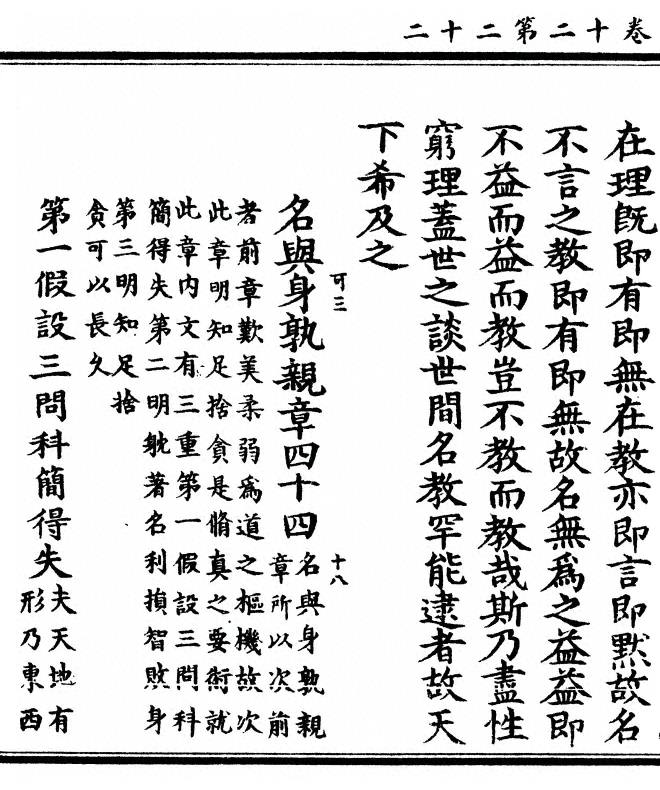 卷十二第二十二
在理旣即有即無在教亦即言即默故名
不言之教即有即無故名無爲之益益即
不益而益而教豈不教而教哉斯乃盡性
窮理蓋世之談世間名教罕能逮者故天
下希及之
可三
十八
名與身孰親章四十四
名與身孰親
章所以次前
者前章歎美柔弱爲道之樞機故次
此章明知足捨貪是脩真之要術就
此章内文有三重第一假設三問科
簡得失第二明躭著名利損智敗身
第三明知足捨
貪可以長久
第一假設三問科簡得失
夫天地有
形乃東西